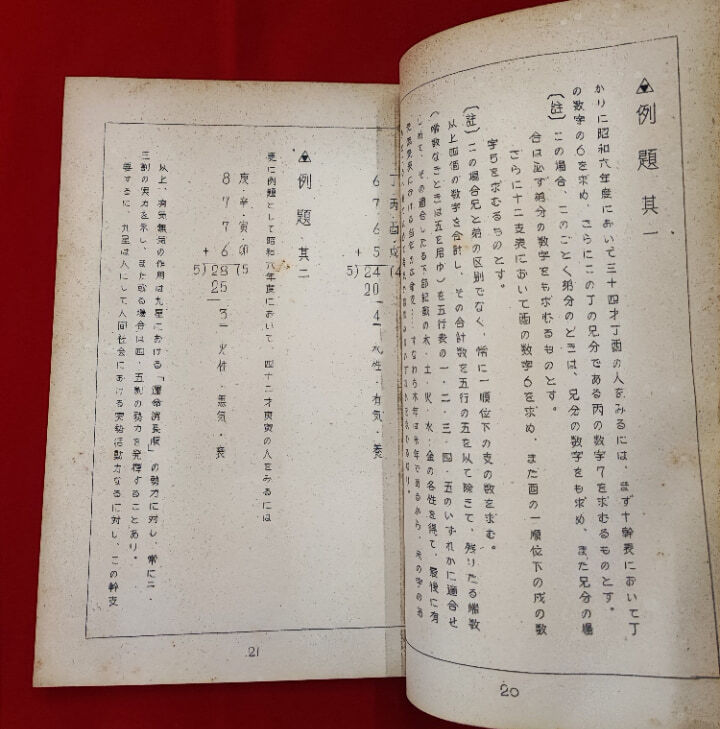 例題其一
かりに昭和六年度において三十四才丁酉の人をみるには、まず十幹表において丁
の数字の6を求め、さらにこの丁の兄分である丙の数字7を求むるものとす。
〔註〕この場合、このごとく弟分のときは、兄分の数字をも求め、また兄分の場
合は必ず弟分の数字をも求むるものとす。
さらに十二支表において酉の数字6を求め、また酉の一順位下の戌の数
字5を求むるものとす。
〔註〕この場合兄と弟の区別でなく、常に一順位下の支の数を求む。
以上四個の数字を合計し、その合計数を五行の五を以て除きて、残りたる端数
(端数なきときは五を用ゆ)を五行表の一・二・三・四・五のいずれかに適合せ
しめて、その適合したる下部記載の木・土・火・水・金の各性を得て、最後に有
20
丁・丙・酉・戌
6 7 6 +5
5)24(4
20
4 ― 水性・有気・養
例題其二
更に例題として昭和六年度において、四十二才庚寅の人をみるには
庚・辛・寅・卯
8 7 7 +6
5)28(5
25
3 ― 火性・無気・衰
以上、有気無気の作用は九星における「運命消長順」の勢力に対し、常に二・
三割の実力を示し、また或る場合は四・五割の勢力を発揮することあり。
要するに、九星は人にして人間社会における実勢活動力なるに対し、この幹支
21